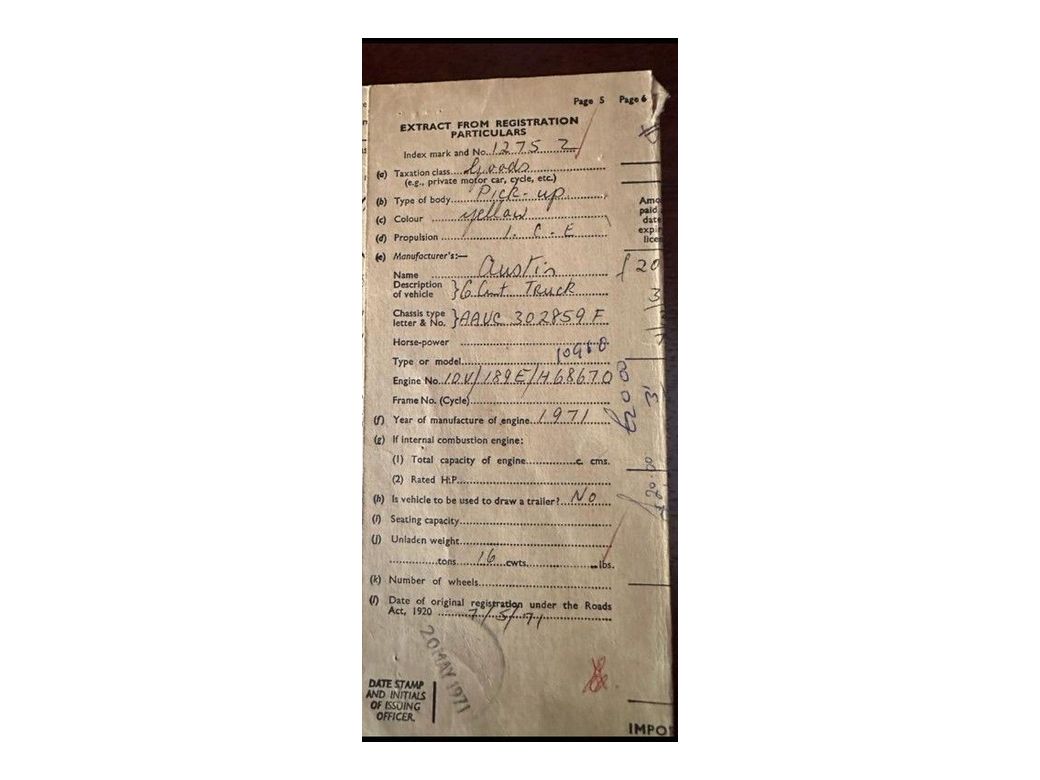 Page 5 Page 6
EXTRACT FROM REGISTRATION
PARTICULARS
Index mark and No. 1275 Z
(a) Taxation class Goods
(e.g., private motor car, cycle, etc.)
(b) Type of body Pick-up
(c) Colour yellow
(d) Propulsion I. C. E
(e) Manufacturer's:—
Name Austin
Description
of vehicle } 6 Cwt Truck
Chassis type
letter & No. } AAVC 302859 F
Horse-power
Type or model
Engine No. 10V/189E/H68670
Frame No. (Cycle)
(f) Year of manufacture of engine 1971
(g) If internal combustion engine:
(1) Total capacity of engine c. cms.
(2) Rated H.P.
(h) Is vehicle to be used to draw a trailer? No
(i) Seating capacity
(j) Unladen weight
tons 16 cwts. lbs.
(k) Number of wheels
(l) Date of original registration under the Roads
Act, 1920 7/5/71
20 MAY 1971
DATE STAMP
AND INITIALS
OF ISSUING
OFFICER.
Amo
paid
date
expir
licen
£20
£20.00
£20.00
IMPO